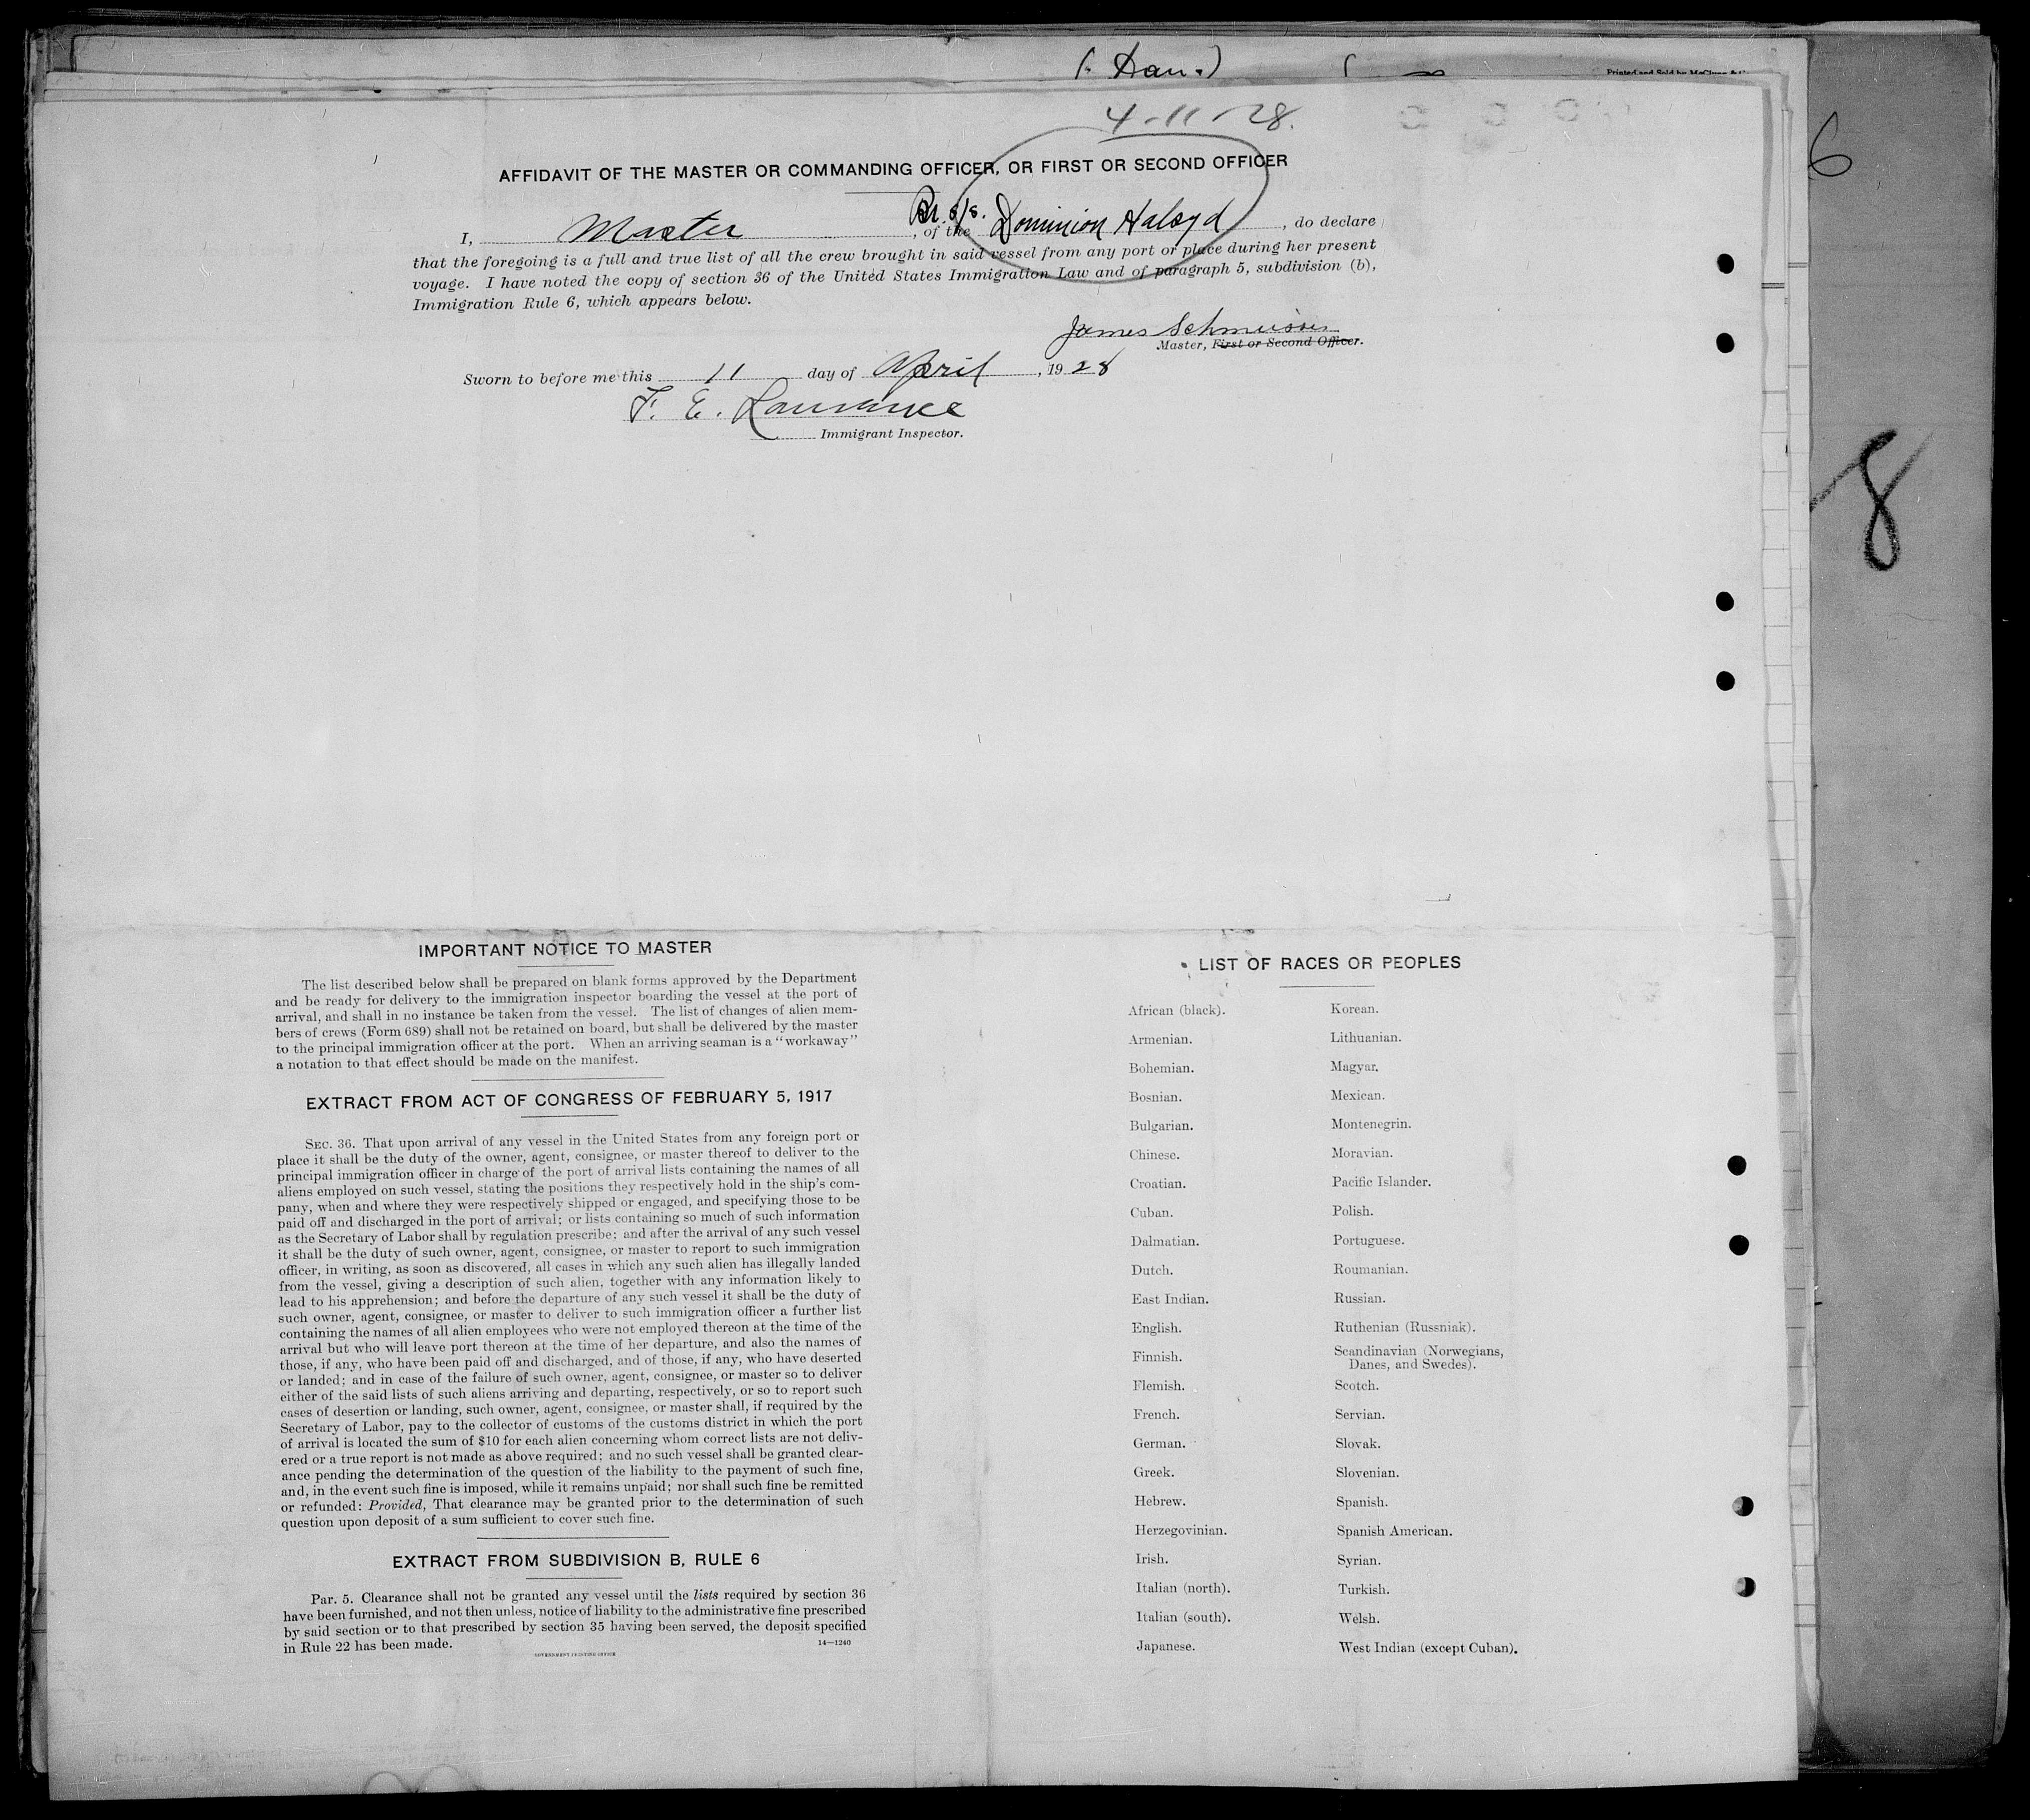 (. Dan.)
Printed and Sold by McClung &
4-11-28.
6
AFFIDAVIT OF THE MASTER OR COMMANDING OFFICER, OR FIRST OR SECOND OFFICER
Br. s/s.
I, Master, of the Dominion Halsyd, do declare
that the foregoing is a full and true list of all the crew brought in said vessel from any port or place during her present
voyage. I have noted the copy of section 36 of the United States Immigration Law and of paragraph 5, subdivision (b),
Immigration Rule 6, which appears below.
James
Master, First or Second Officer.
Sworn to before me this 11 day of April, 1928
F. E. Lawrance
Immigrant Inspector.
8
IMPORTANT NOTICE TO MASTER
The list described below shall be prepared on blank forms approved by the Department
and be ready for delivery to the immigration inspector boarding the vessel at the port of
arrival, and shall in no instance be taken from the vessel. The list of changes of alien mem-
bers of crews (Form 689) shall not be retained on board, but shall be delivered by the master
to the principal immigration officer at the port. When an arriving seaman is a "workaway"
a notation to that effect should be made on the manifest.
EXTRACT FROM ACT OF CONGRESS OF FEBRUARY 5, 1917
SEC. 36. That upon arrival of any vessel in the United States from any foreign port or
place it shall be the duty of the owner, agent, consignee, or master thereof to deliver to the
principal immigration officer in charge of the port of arrival lists containing the names of all
aliens employed on such vessel, stating the positions they respectively hold in the ship's com-
pany, when and where they were respectively shipped or engaged, and specifying those to be
paid off and discharged in the port of arrival; or lists containing so much of such information
as the Secretary of Labor shall by regulation prescribe; and after the arrival of any such vessel
it shall be the duty of such owner, agent, consignee, or master to report to such immigration
officer, in writing, as soon as discovered, all cases in which any such alien has illegally landed
from the vessel, giving a description of such alien, together with any information likely to
lead to his apprehension; and before the departure of any such vessel it shall be the duty of
such owner, agent, consignee, or master to deliver to such immigration officer a further list
containing the names of all alien employees who were not employed thereon at the time of the
arrival but who will leave port thereon at the time of her departure, and also the names of
those, if any, who have been paid off and discharged, and of those, if any, who have deserted
or landed; and in case of the failure of such owner, agent, consignee, or master so to deliver
either of the said lists of such aliens arriving and departing, respectively, or so to report such
cases of desertion or landing, such owner, agent, consignee, or master shall, if required by the
Secretary of Labor, pay to the collector of customs of the customs district in which the port
of arrival is located the sum of $10 for each alien concerning whom correct lists are not deliv-
ered or a true report is not made as above required; and no such vessel shall be granted clear-
ance pending the determination of the question of the liability to the payment of such fine,
and, in the event such fine is imposed, while it remains unpaid; nor shall such fine be remitted
or refunded: Provided, That clearance may be granted prior to the determination of such
question upon deposit of a sum sufficient to cover such fine.
EXTRACT FROM SUBDIVISION B, RULE 6
Par. 5. Clearance shall not be granted any vessel until the lists required by section 36
have been furnished, and not then unless, notice of liability to the administrative fine prescribed
by said section or to that prescribed by section 35 having been served, the deposit specified
in Rule 22 has been made.
14—1240
GOVERNMENT PRINTING OFFICE
LIST OF RACES OR PEOPLES
African (black).
Armenian.
Bohemian.
Bosnian.
Bulgarian.
Chinese.
Croatian.
Cuban.
Dalmatian.
Dutch.
East Indian.
English.
Finnish.
Flemish.
French.
German.
Greek.
Hebrew.
Herzegovinian.
Irish.
Italian (north).
Italian (south).
Japanese.
Korean.
Lithuanian.
Magyar.
Mexican.
Montenegrin.
Moravian.
Pacific Islander.
Polish.
Portuguese.
Roumanian.
Russian.
Ruthenian (Russniak).
Scandinavian (Norwegians,
Danes, and Swedes).
Scotch.
Servian.
Slovak.
Slovenian.
Spanish.
Spanish American.
Syrian.
Turkish.
Welsh.
West Indian (except Cuban).